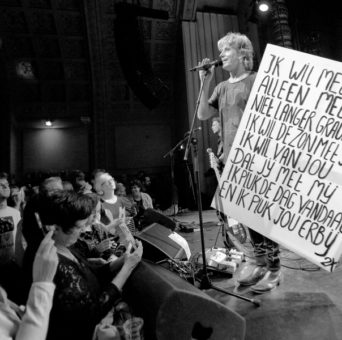 IK WIL MEE
ALLEEN MEE
NIET LANGER GRAU
IK WIL DE ZON MEE
IK WIL VAN JOU
DAT JY MEE MY
IK PLUK DE DAG VANDAAG
EN IK PLUK JOU ERBY
2X